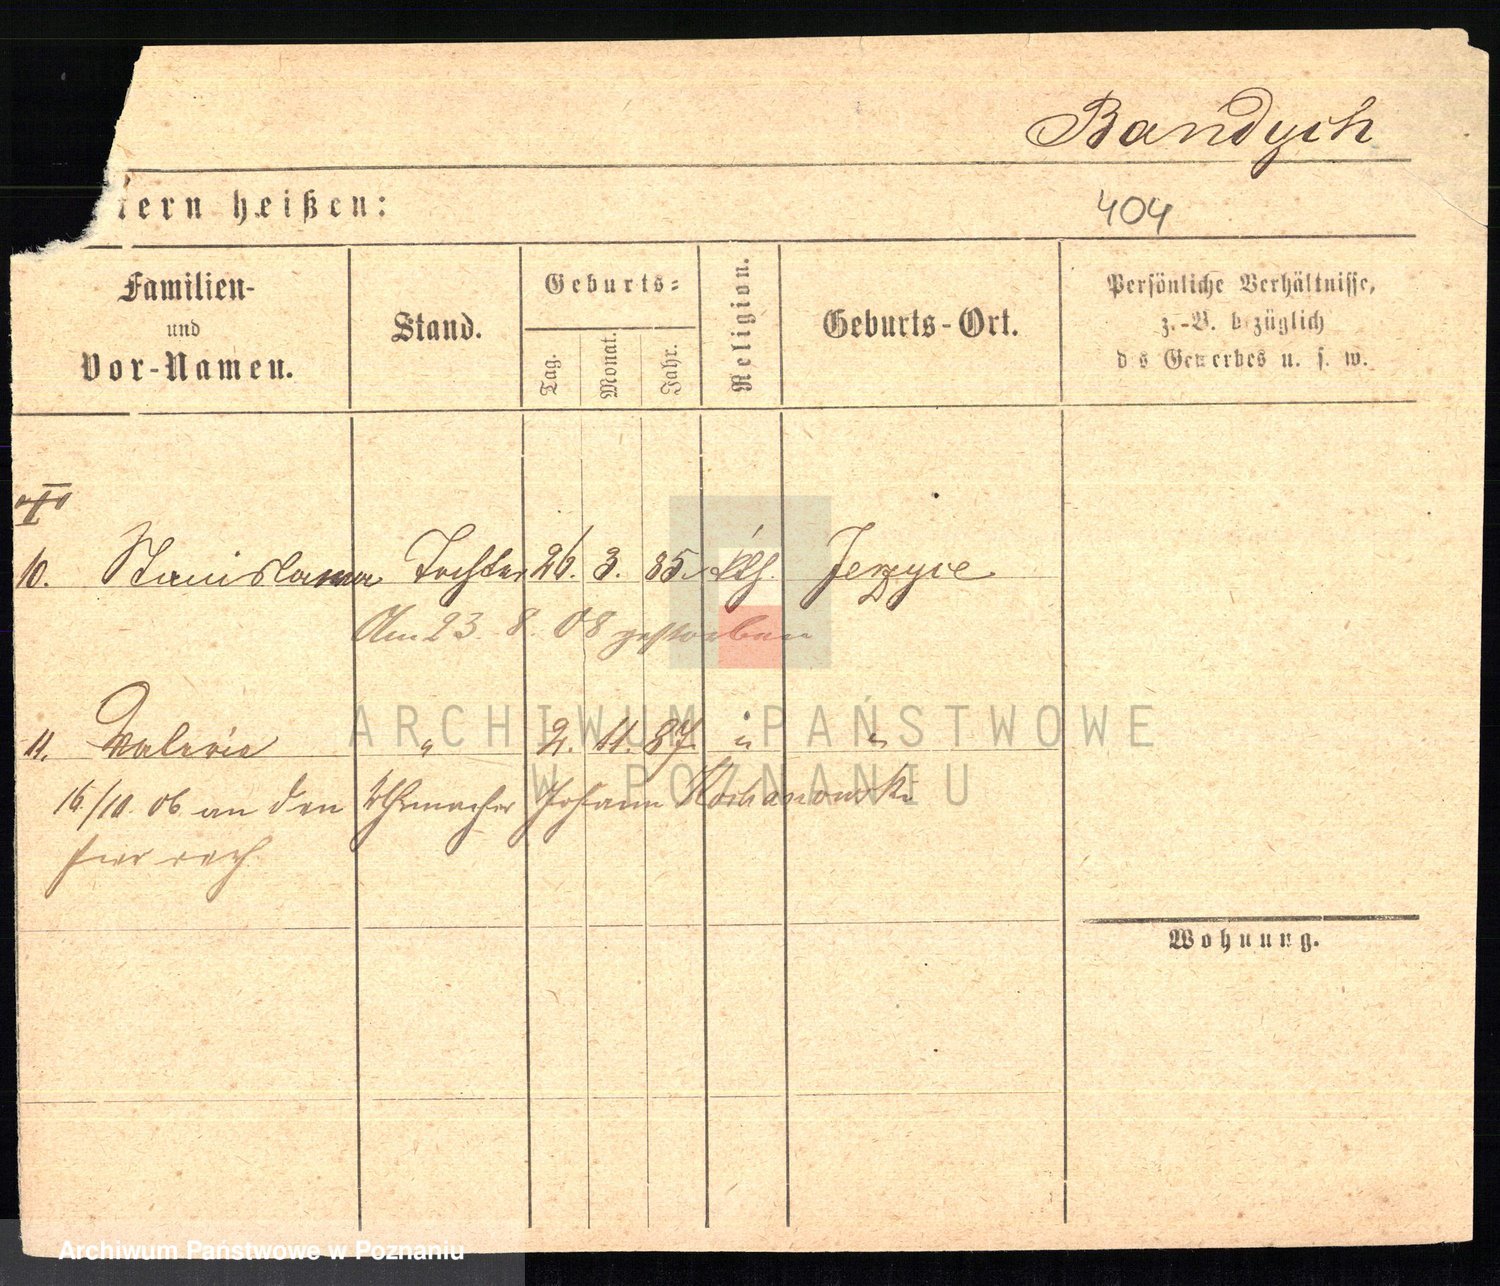 Bandych
tern heißen:
404
Familien-
und
Vor-Namen.
Stand.
Geburts-
Tag.
Monat.
Jahr.
Religion.
Geburts-Ort.
Persönliche Verhältnisse,
z.-B. bezüglich
d s Gewerbes u. s. w.
10. Stanislawa Tochter 26. 3. 85. kth. Jerzyce
Am 23. 8. 08 gestorben
11. Valerie " 2. 11. 87. " "
16./10. 06 an den Uhrmacher Johann Kochanowski
hier verh.
Wohnung.
ARCHIWUM PAŃSTWOWE
W POZNANIU
Archiwum Państwowe w Poznaniu